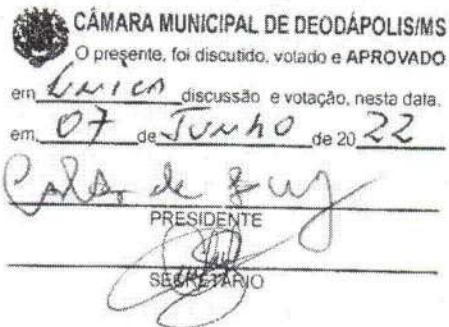 CÂMARA MUNICIPAL DE DEODÁPOLIS/MS
O presente, foi discutido, votado e APROVADO
em Única discussão e votação, nesta data.
em, 07 de Junho de 20 22
PRESIDENTE
SECRETÁRIO